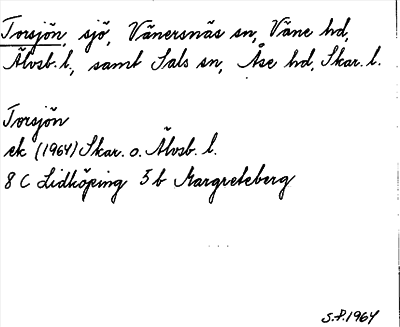 Torsjön, sjö, Vänersnäs sn, Väne hd,
Älvsb. l., samt Sals sn, Åse hd, Skar. l.
Torsjön
ek (1964) Skar. o. Älvsb. l.
8 C Lidköping 5 b Margreteberg
S.P. 1964